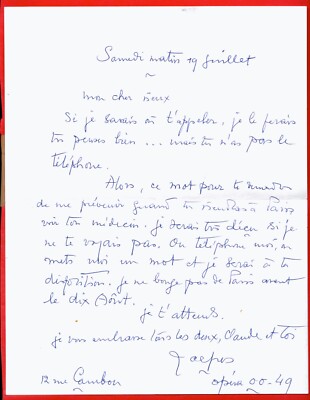 Samedi matin 19 Juillet
mon cher vieux
Si je savais où t'appeler, je le ferais
tu penses bien ... mais tu n'as pas le
téléphone.
Alors, ce mot pour te
de me prévenir quand tu viendras à Paris
voir ton médecin. je serai très déçu si je
ne te voyais pas. Ou téléphone moi, ou
mets moi un mot et je serai à ta
disposition. je ne bouge pas de Paris avant
le dix Août.
je t'attends.
je vous embrasse tous les deux, Claude et toi
12 rue Cambon
opéra 00-49